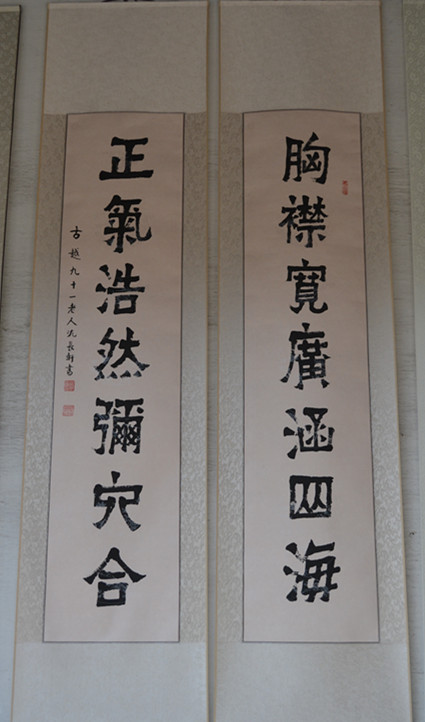 胸襟寬廣涵四海
正氣浩然彌六合
古越九十一老人沈長新書